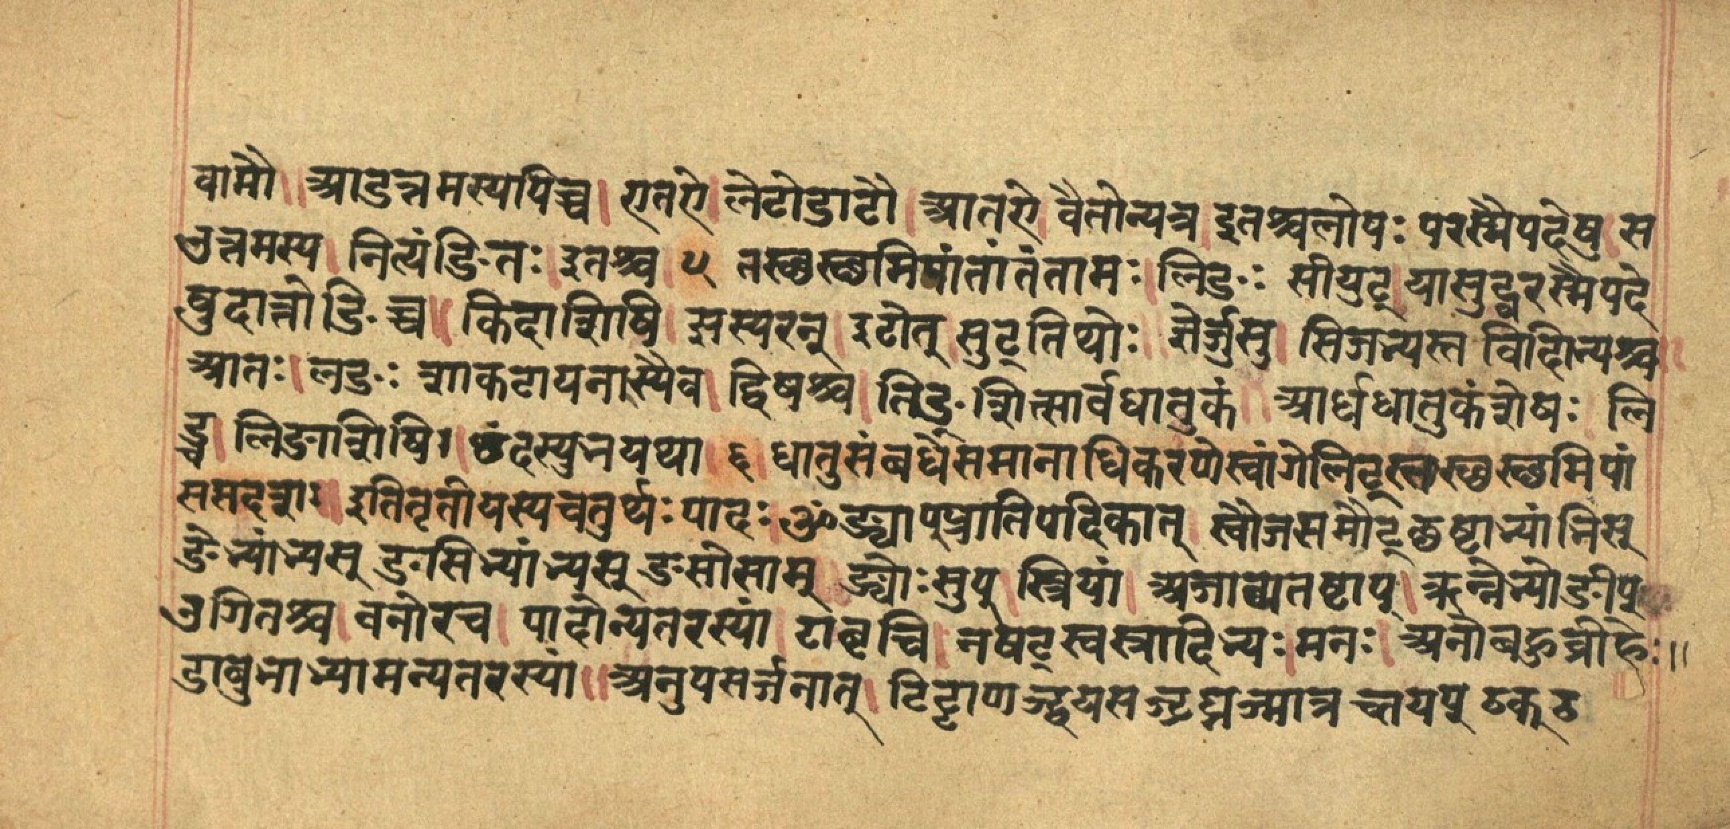 वामौ॥ आडुत्तमस्यपिच्च। एतऐ। लेटोडाटौ। आतऐ। वैतोन्यत्र। इतश्चलोपः परस्मैपदेषु। स
उत्तमस्य। नित्यंङितः। इतश्च। ५ तस्थस्थमिपांतांतंतामः। लिङः सीयुट्। यासुट्परस्मैपदे
षुदात्तोङिच्च॥ किदाशिषि। झस्यरन्। इटोत्। सुट्तिथोः। झेर्जुस्। सिजभ्यस्तविदिभ्यश्च॥
आतः। लङः शाकटायनास्यैव। द्विषश्च। तिङ्शित्सार्वधातुकं॥ आर्धधातुकंशेषः। लि
ट्च। लिङाशिषि। छंदस्युभयथा। ६। धातुसंबर्धेसमानाधिकरणेस्वांगेलिट्स्तस्थस्थमिपां
ससदश। इतितृतीयस्यचतुर्थः पादः ॐ ङ्याप्प्रातिपदिकात्। स्वौजसमौट्छष्टाभ्यांभिस्
ङेभ्यांभ्यस् ङसिभ्यांभ्यस् ङसोसाम् ङ्योः सुप्। स्त्रियां। अजाद्यतष्टाप्। ऋन्नेभ्योङीप्
उगितश्च। वनोरच। पादोन्यतरस्यां। टाबृचि। नषट्स्वस्रादिभ्यः। मनः। अनोबहुव्रीहेः॥
डाबुभाभ्यामन्यतरस्यां॥ अनुपसर्जनात्। टिट्ढाणञ्द्वयसज्दघ्नञ्मात्रच्तयप्ठक्ठ